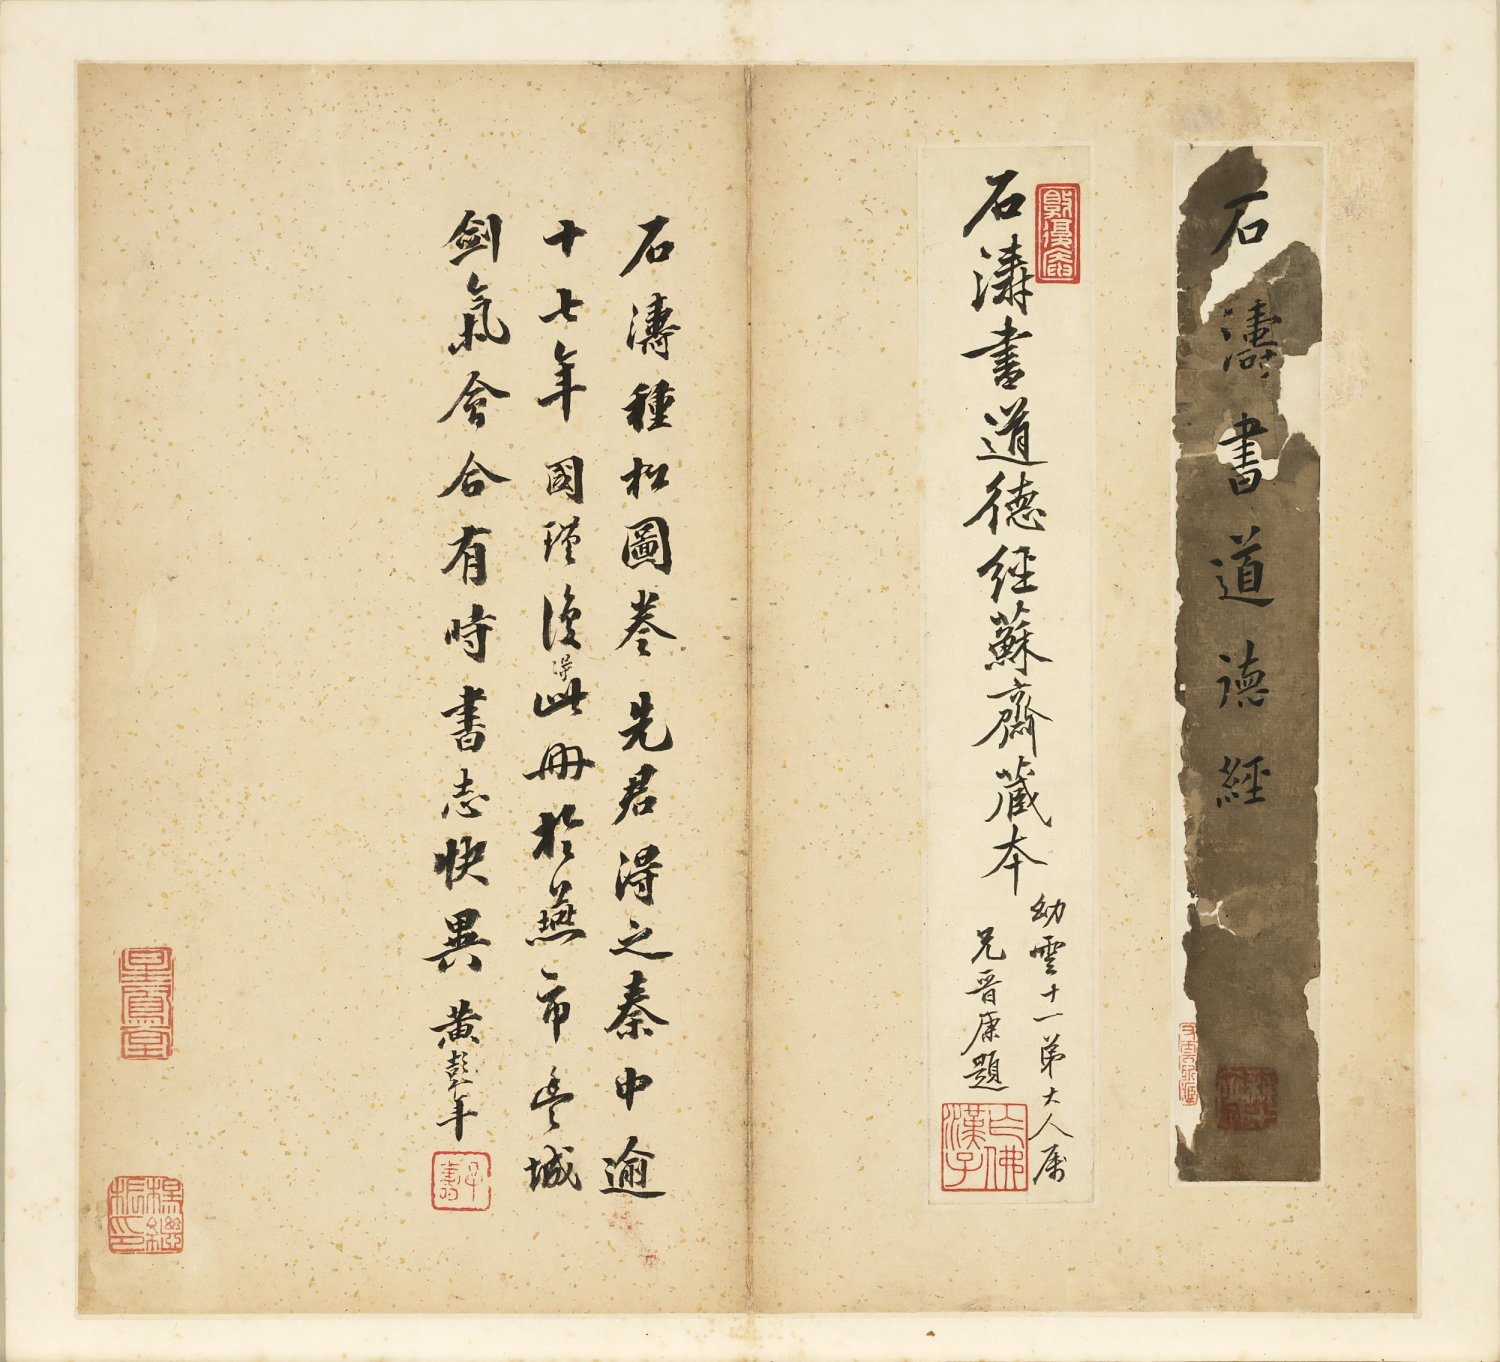 石濤書道德經
石濤書道德經蘇齋藏本
幼雲十一弟大人屬
兄晉康題
石濤種松圖卷先君得之秦中逾
十七年國瑾復得此冊於燕市豐城
劍氣會合有時書志快異黃彭年